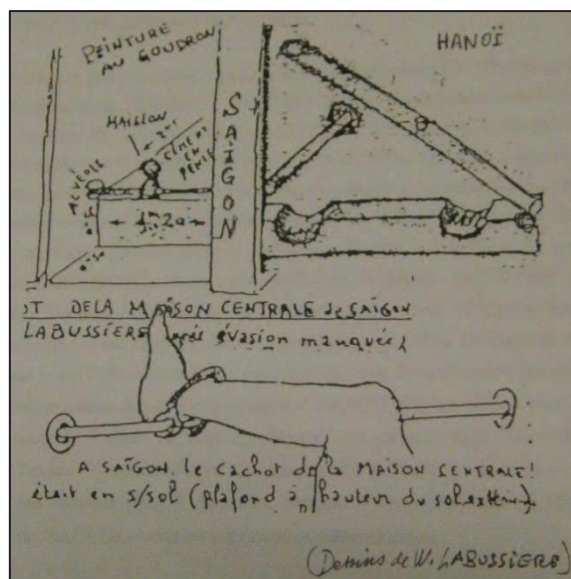 PEINTURE
AU GOUDRON
HANOÏ
MAILLON
CIMENT
EN
PENTE
SAIGON
ALVEOLE
1,20
OT DE LA MAISON CENTRALE de SAÏGON
LABUSSIÈRE après évasion manquée)
A SAÏGON, le cachot de la MAISON CENTRALE!
était en s/sol (plafond à hauteur du sol extérieur).
(Dessins de W. LABUSSIERE)